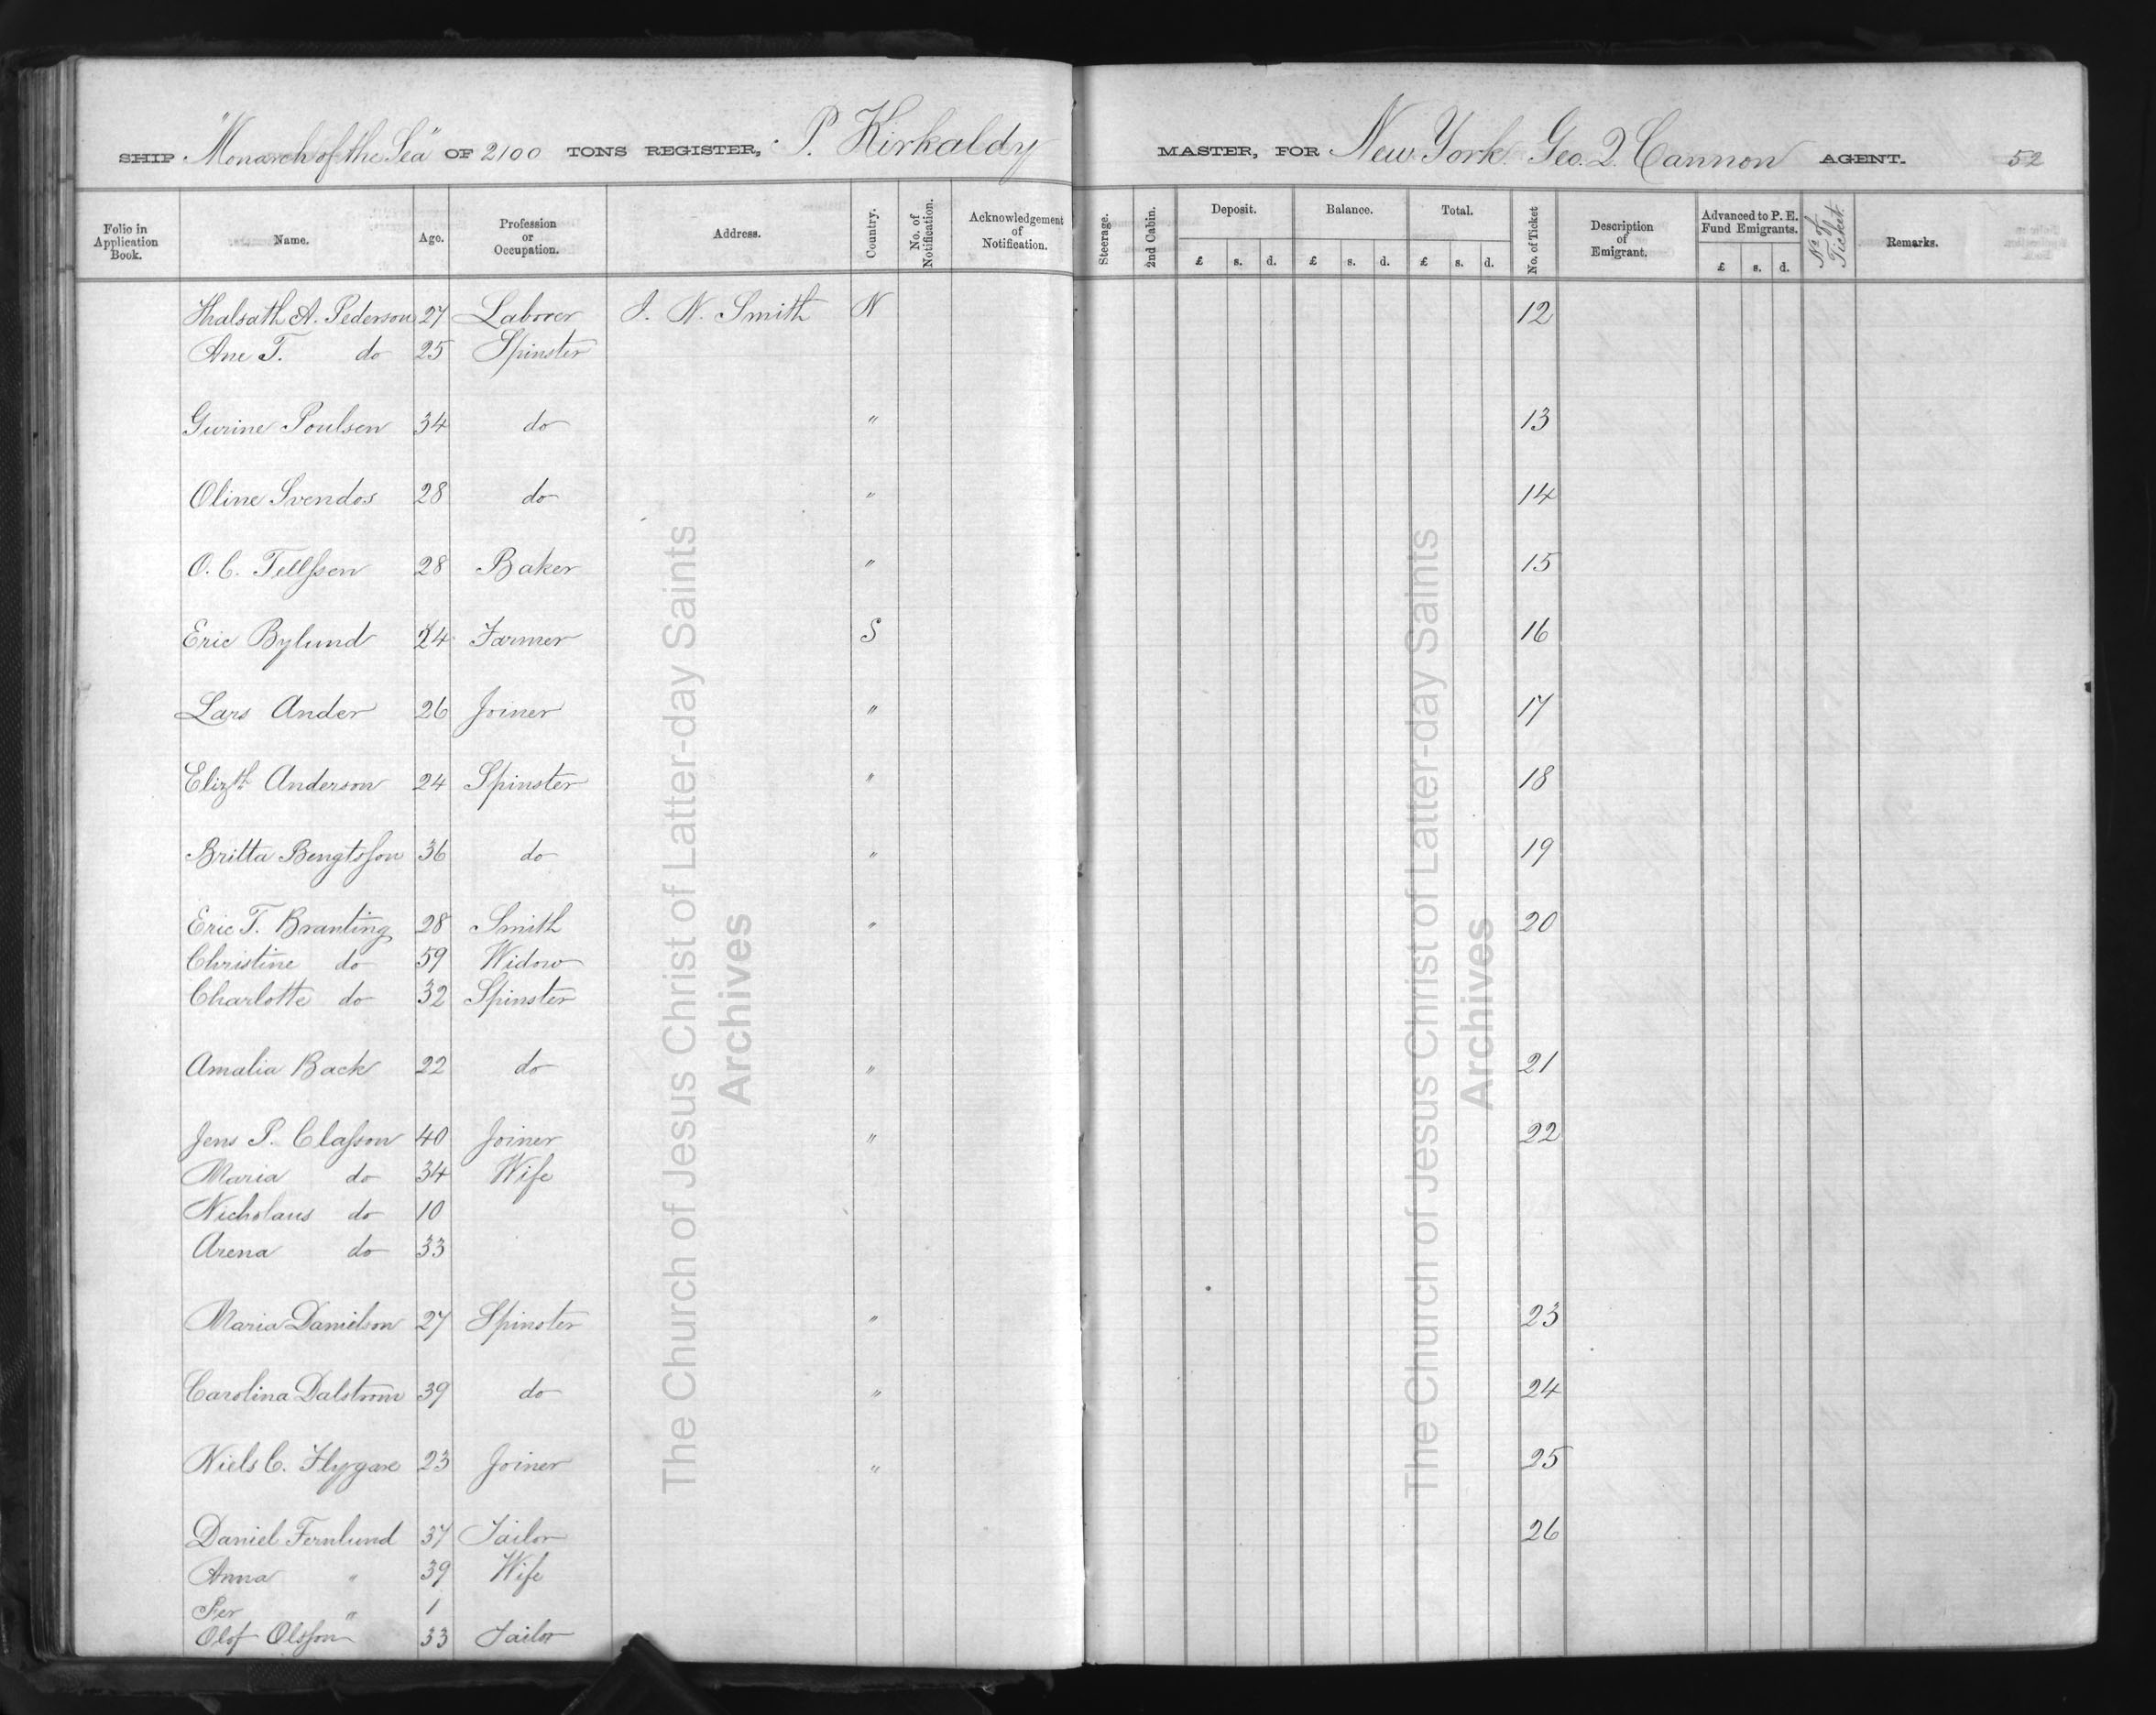 SHIP "Monarch of the Sea" OF 2100 TONS REGISTER, P. Kirkaldy MASTER, FOR New York Geo. Q. Cannon AGENT. 52
Folio in Application Book. Name. Age. Profession or Occupation. Address. Country. No. of Notification. Acknowledgement of Notification. Steerage. 2nd Cabin. Deposit. £ s. d. Balance. £ s. d. Total. £ s. d. No. of Ticket Description of Emigrant. Advanced to P. E. Fund Emigrants. £ s. d. No. of Ticket. Remarks.
A. Pederson 27 Laborer J. N. Smith N 12
Ane T. do 25 Spinster
Gurine Poulsen 34 do " 13
Oline Svendos 28 do " 14
O. C. Tellssen 28 Baker " 15
Eric Bylund 24 Farmer S 16
Lars Ander 26 Joiner " 17
Elizth Anderson 24 Spinster " 18
Britta Bengtsson 36 do " 19
Eric T. Branting 28 Smith " 20
Christine do 59 Widow
Charlotte do 32 Spinster
Amalia Back 22 do " 21
Jens P. Classon 40 Joiner " 22
Maria do 34 Wife
Nicholaus do 10
Arena do 33
Maria Danielson 27 Spinster " 23
Carolina Dalstrom 39 do " 24
Niels C. Flygare 23 Joiner " 25
Daniel Fernlund 37 Tailor 26
Anna " 39 Wife
Per " 1
Olof Olsson 33 Tailor
The Church of Jesus Christ of Latter-day Saints
Archives
The Church of Jesus Christ of Latter-day Saints
Archives